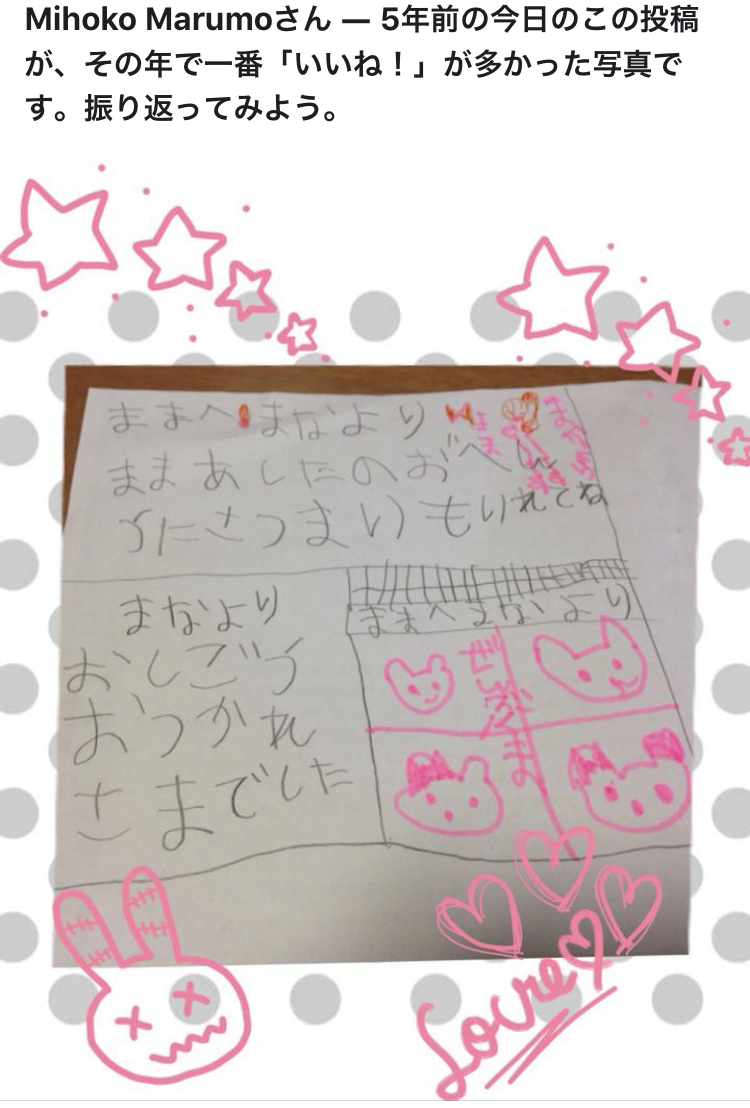 Mihoko Marumoさん — 5年前の今日のこの投稿
が、その年で一番「いいね！」が多かった写真で
す。振り返ってみよう。
ままへ まなより
まま あしたのおべん
とうにさつまいもいれてね
まなより
おしごとう
おつかれ
さまでした
ままへまなより
Love